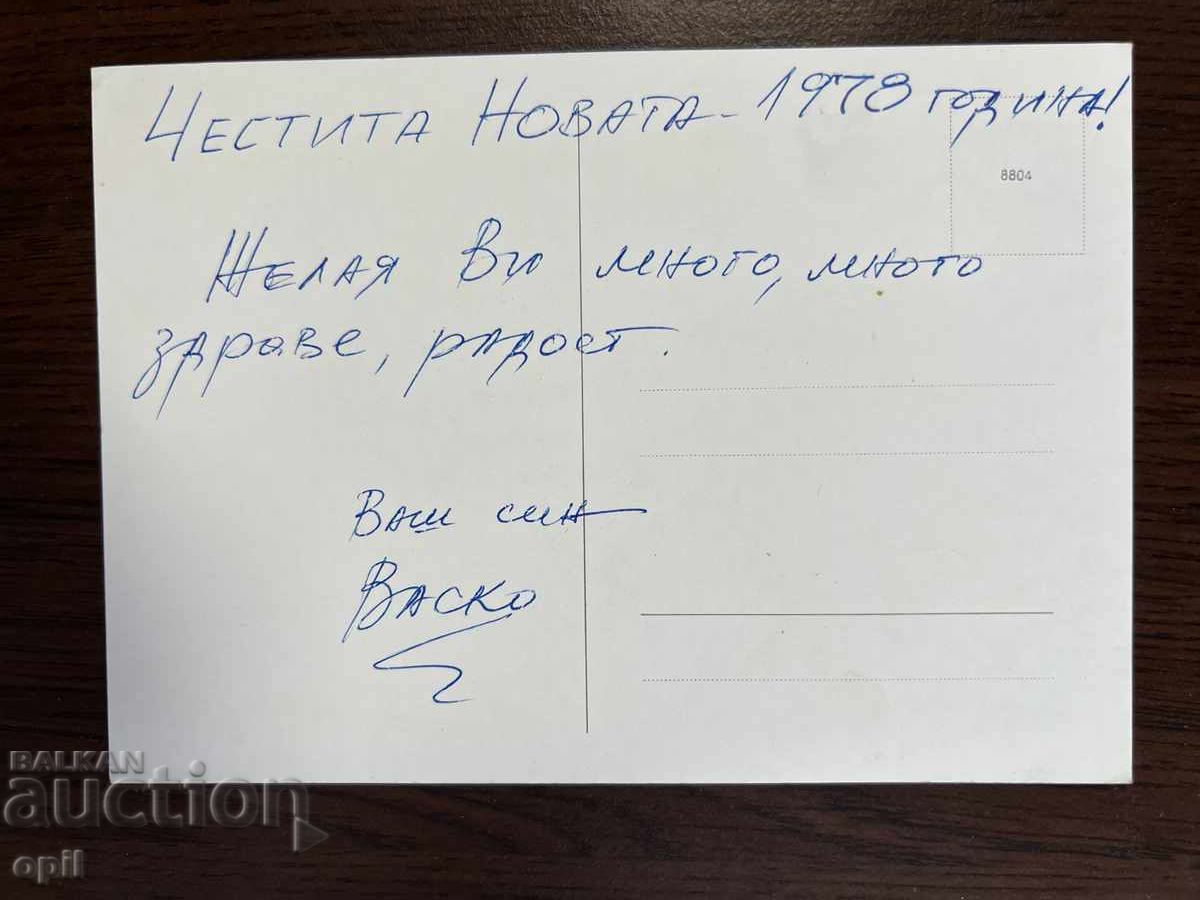 Честита Новата - 1978 година!
8804
Желая Ви много, много
здраве, радост.
Ваш син
Васко
BALKAN
auction
opil